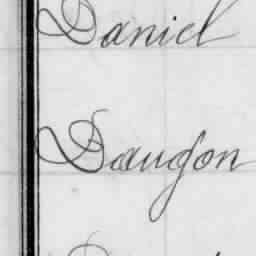 Daniel
Daugon